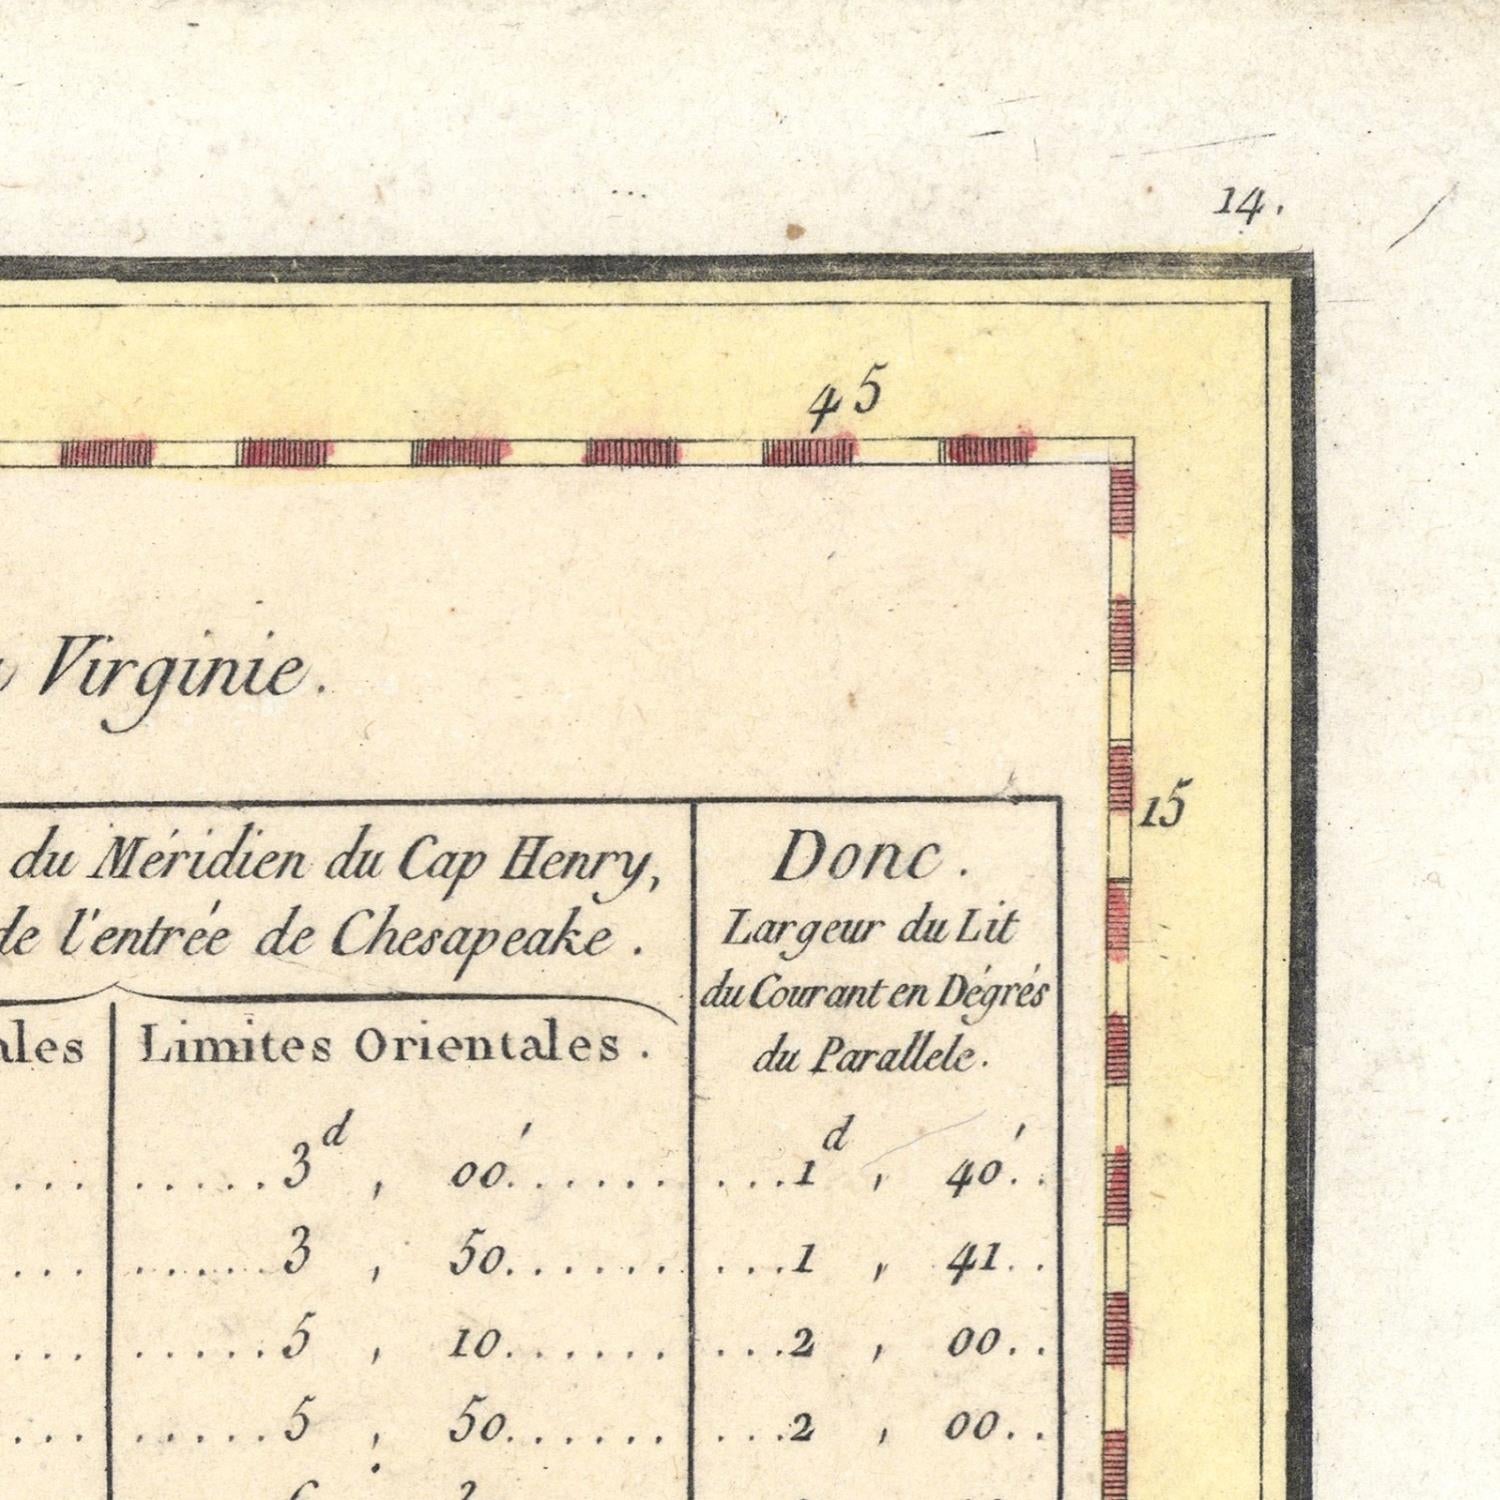 14.
45
Virginie.
15
du Méridien du Cap Henry,
de l'entrée de Chesapeake.
Limites Orientales.
Donc.
Largeur du Lit
du Courant en Dégrés
du Parallele.
.....3d , 00'...... ...1d , 40'..
.....3 , 50...... ...1 , 41..
.....5 , 10...... ...2 , 00..
.....5 , 50...... ...2 , 00..